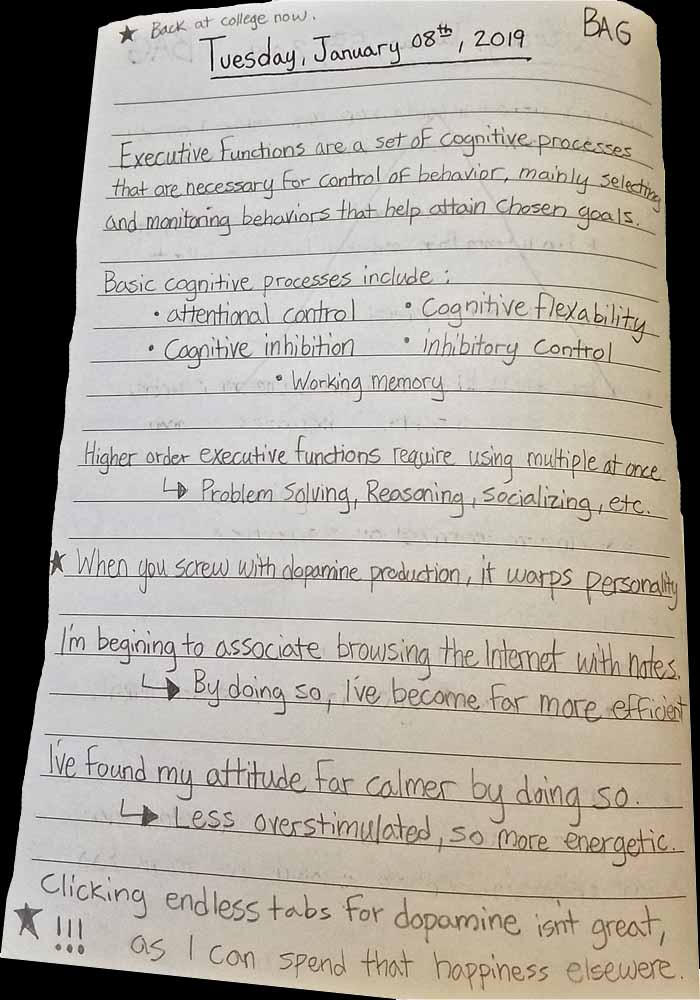 ★ Back at college now.
BAG
Tuesday, January 08th, 2019
Executive Functions are a set of cognitive processes
that are necessary for control of behavior, mainly selecting
and monitoring behaviors that help attain chosen goals.
Basic cognitive processes include:
• attentional control • Cognitive flexability
• Cognitive inhibition • inhibitory control
• Working memory
Higher order executive functions require using multiple at once
↳ Problem Solving, Reasoning, socializing, etc.
★ When you screw with dopamine production, it warps personality
I'm begining to associate browsing the Internet with notes.
↳ By doing so, I've become far more efficient
I've found my attitude far calmer by doing so.
↳ Less overstimulated, so more energetic.
Clicking endless tabs for dopamine isn't great,
★ !!! as I can spend that happiness elsewere.